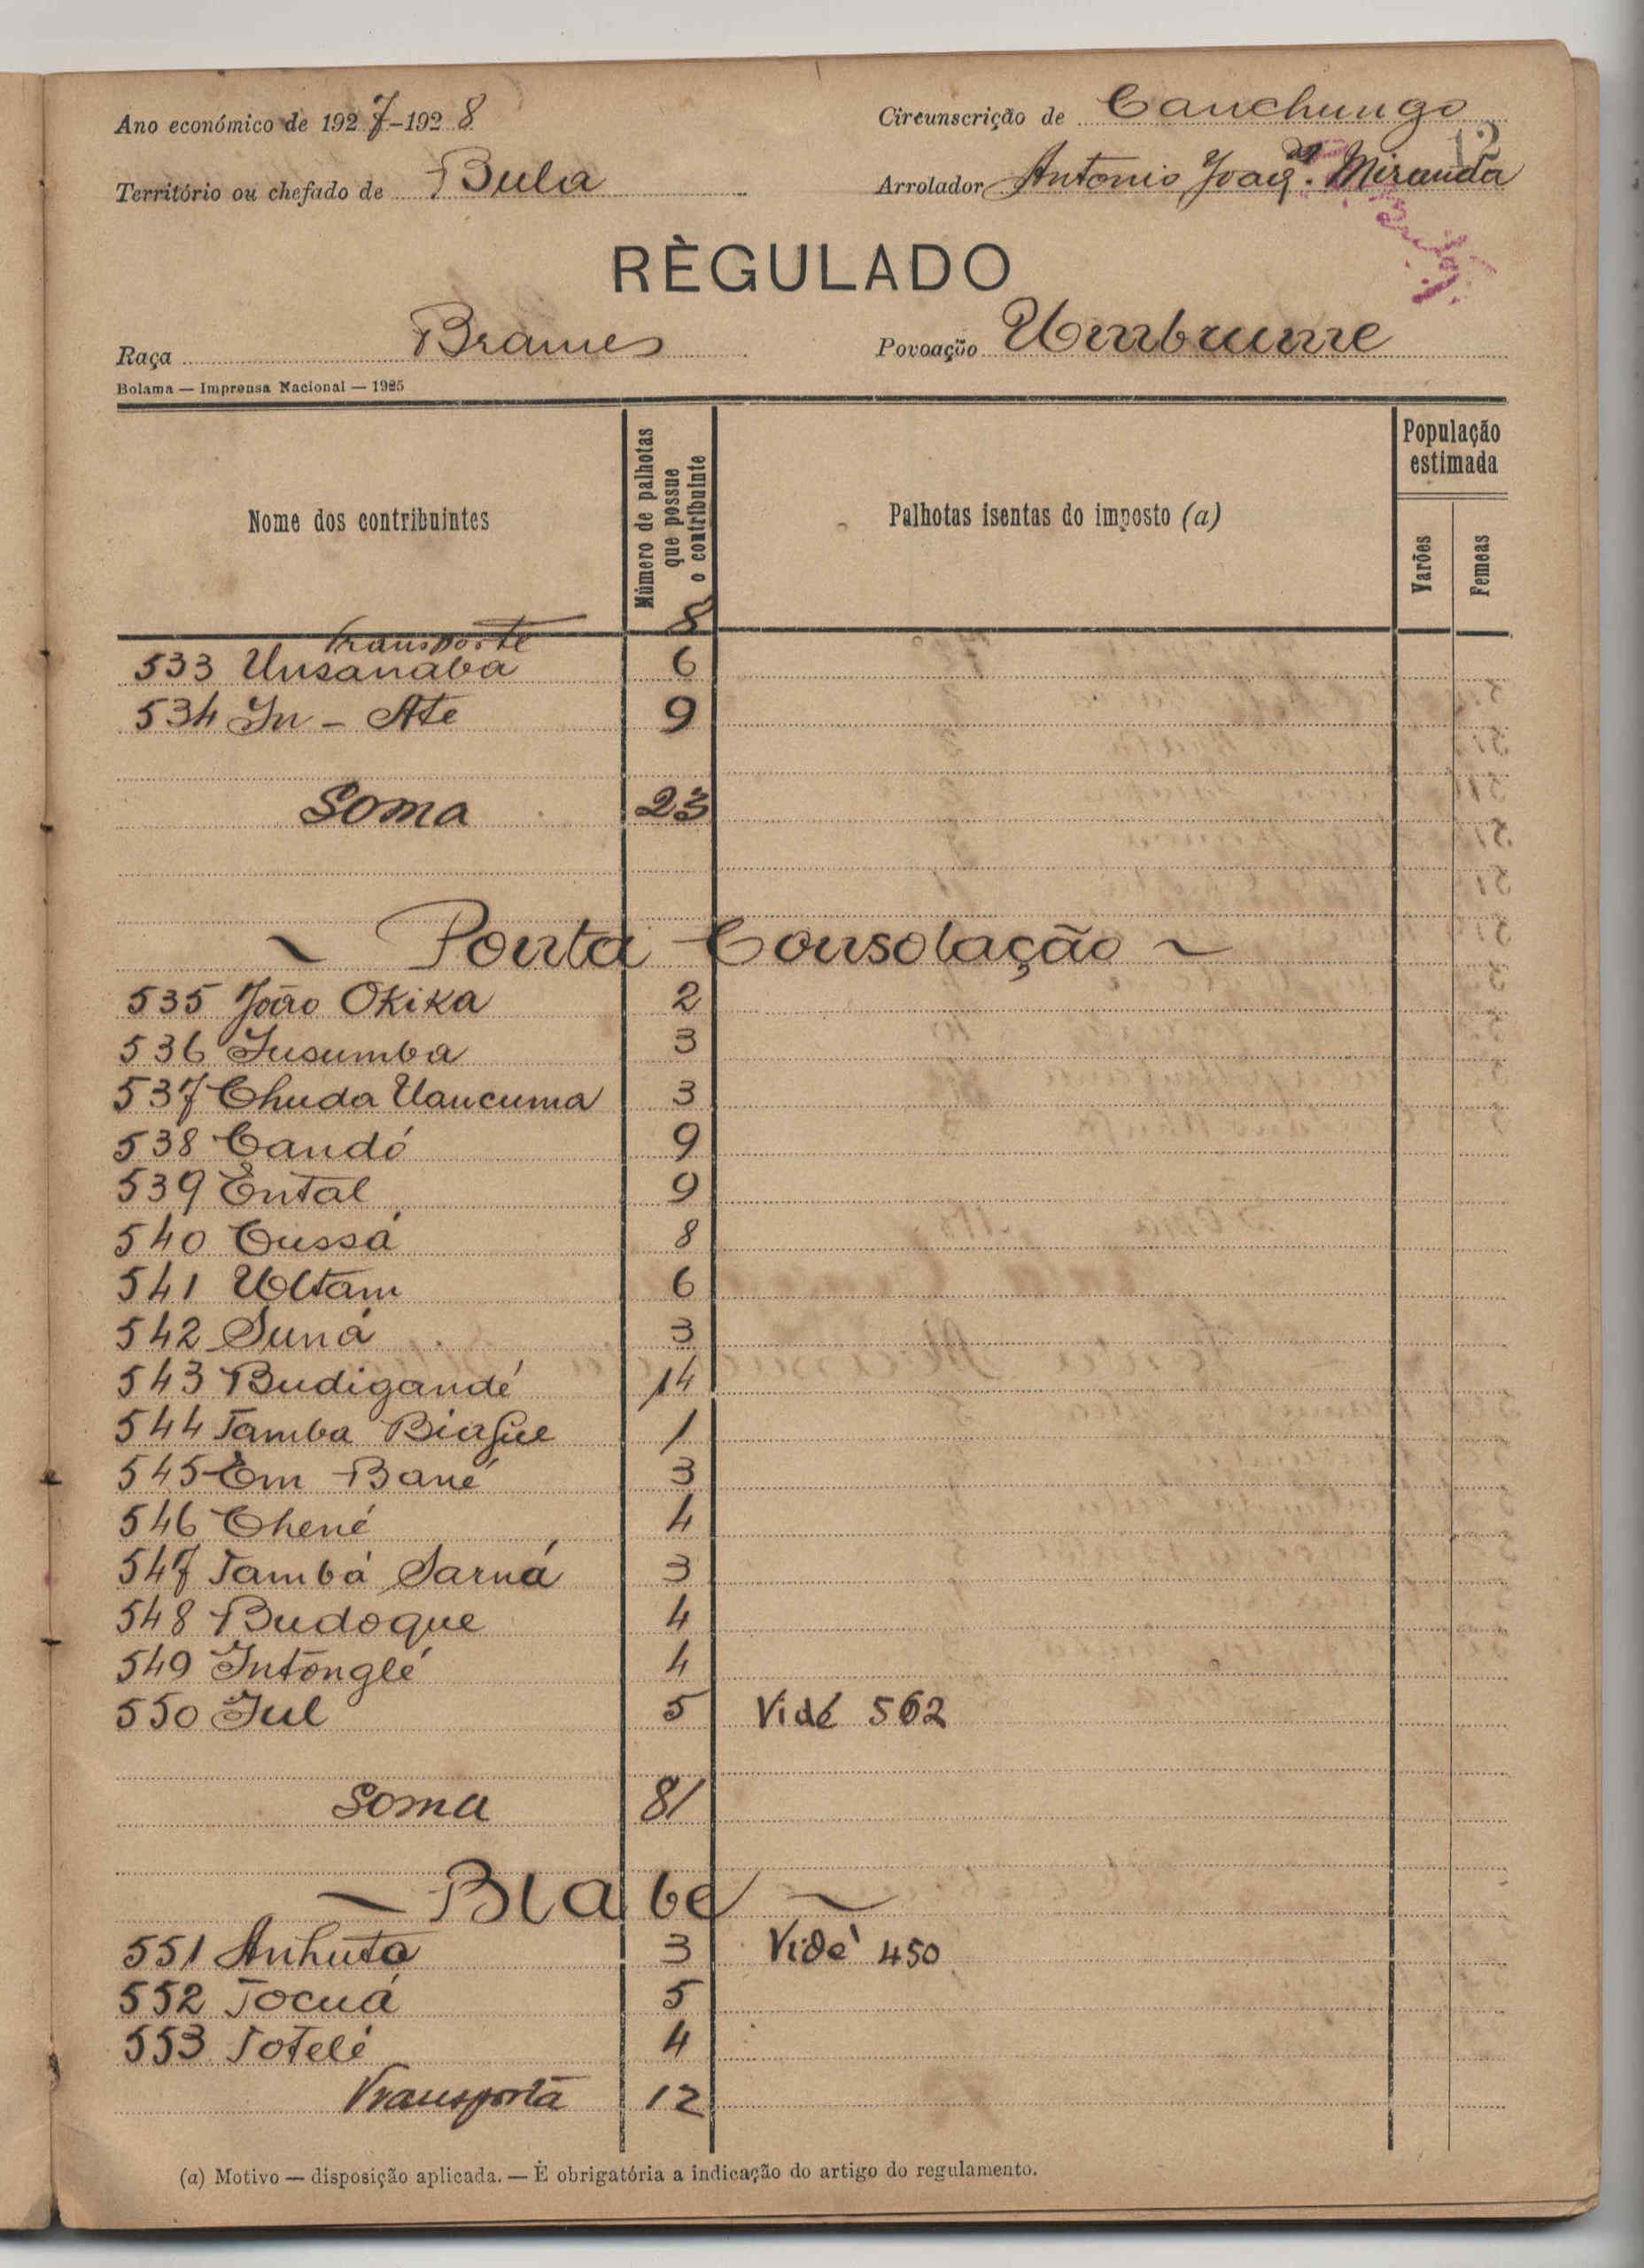 Ano económico de 1927-1928
Circunscrição de Canchungo
12
Território ou chefado de Bula
Arrolador Antonio Joaqm. Miranda
RÈGULADO
Raça Brames
Povoação Umbrume
Bolama — Imprensa Nacional — 1925
Nome dos contribuintes
Número de palhotas que possue o contribuinte
Palhotas isentas do imposto (a)
População estimada
Varões
Femeas
Transporte 8
533 Unsanaba 6
534 In - Ate 9
Soma 23
~ Ponta Consolação ~
535 João Okika 2
536 Insumba 3
537 Chuda Uancuma 3
538 Candó 9
539 Ental 9
540 Cussá 8
541 Uoltam 6
542 Suná 3
543 Budigandé 14
544 Tamba Biague 1
545 Em Bané 3
546 Chené 4
547 Tambá Sarná 3
548 Budoque 4
549 Intonglé 4
550 Jul 5 Vidé 562
Soma 81
~ Blabe ~
551 Anhuta 3 Vidé 450
552 Tocuá 5
553 Totelé 4
Transporta 12
(a) Motivo — disposição aplicada. — É obrigatória a indicação do artigo do regulamento.